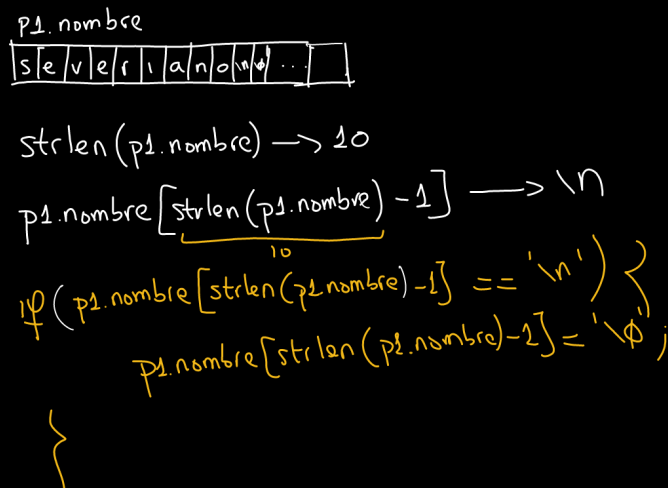 p1.nombre
s e v e r i a n o \n \0 ...
strlen(p1.nombre) → 10
p1.nombre[strlen(p1.nombre) -1] → \n
10
if(p1.nombre[strlen(p1.nombre)-1] == '\n') {
p1.nombre[strlen(p1.nombre)-1]='\0';
}